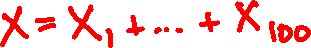 X = X₁ + ... + X₁₀₀